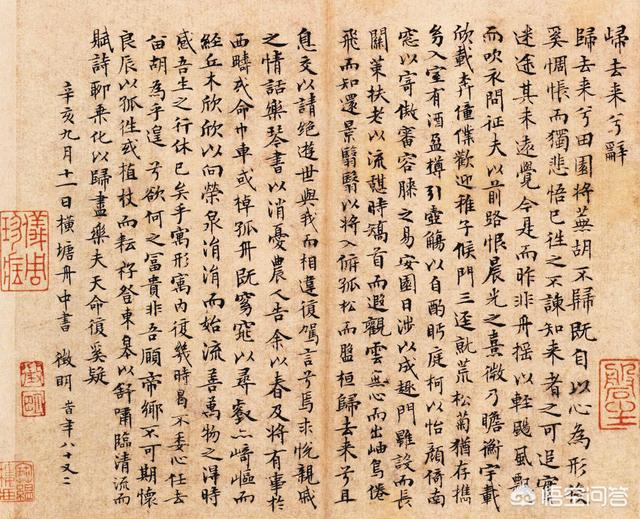 歸去来兮辭
歸去来兮田園將蕪胡不歸既自以心為形役
奚惆悵而獨悲悟已往之不諫知来者之可追實
迷途其未遠覺今是而昨非舟摇以輕颺風飄飄
而吹衣問征夫以前路恨晨光之熹微乃瞻衡宇載
欣載奔僮僕歡迎稚子候門三逕就荒松菊猶存攜
幼入室有酒盈樽引壺觴以自酌眄庭柯以怡顔倚南
窓以寄傲審容膝之易安園日涉以成趣門雖設而長
關策扶老以流憩時矯首而遐觀雲無心而出岫鳥倦
飛而知還景翳翳以將入撫孤松而盤桓歸去来兮且
息交以請絕遊世與我而相違復駕言兮焉求悅親戚
之情話樂琴書以消憂農人告余以春及將有事於
西疇或命巾車或棹孤舟既窈窕以尋壑亦崎嶇而
經丘木欣欣以向榮泉涓涓而始流善萬物之得時
感吾生之行休已矣乎寓形寓内復幾時曷不委心任去
留胡為乎遑遑兮欲何之富貴非吾願帝鄉不可期懷
良辰以孤往或植杖而耘耔登東皋以舒嘯臨清流而
賦詩聊乘化以歸盡樂夫天命復奚疑
辛亥九月十一日橫塘舟中書 徵明 時年八十又二
徵明
悟空问答